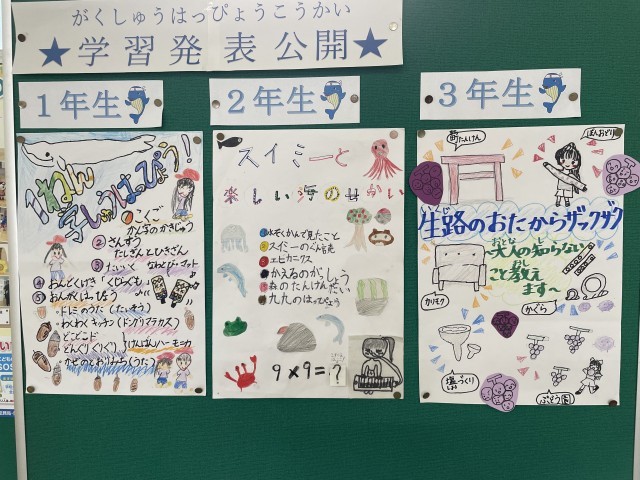 がくしゅうはっぴょうこうかい
★学習発表公開★
1年生
2年生
3年生
1ねん
学しゅうはっぴょう!
①こくご
かん字のかきじゅう
②さんすう
たしざんとひきざん
③たいく なわとび・マット
④おんどくげき「くじらぐも」
⑤おんがくはっぴょう
・ドレミのうた(たいそう)
・わくわくキッチン(ドングリマラカス)
・どこどこド
・どんぐりぐりぐり
けんばんハーモニカ
・かぜのとおりみち(うた)
スイミーと
楽しい海のせかい
水ぞくかんで見たこと
スイミーのぐん読
エビカニクス
かえるのがっしょう
森のたんけんたい
九九のはっぴょう
9×9=?
町たんけん
ぼんおどり
生路のおたからザックザク
いくじ
〜大人の知らない
おとな
こと教え
ます〜
カリモク
かぐら
塩づくり
ぶどう園